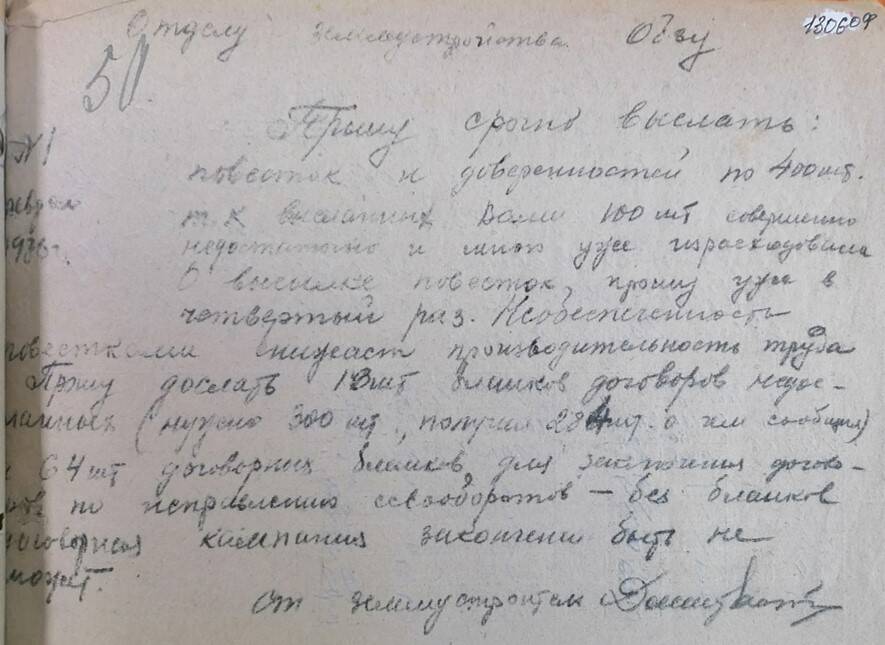 Отделу землеустройства ОбЗУ
130609
50
Прошу срочно выслать:
№1
повесток и доверенностей по 400 шт.
т.к высланных Вами 100 шт совершенно
недостаточно и мною уже израсходованы
О высылке повесток, прошу уже в
четвертый раз. Необеспеченность
повестками снижает производительность труда
Прошу дослать 13 шт бланков договоров недос-
ланных (нужно 300 шт, получил 284 шт. о чем сообщил)
и 64 шт договорных бланков для заключения догово-
ров по исправлению севооборотов – без бланков
договорная кампания закончена быть не
может.
ст землеустроитель